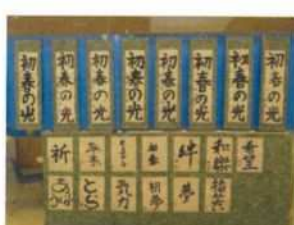 初春の光
初春の光
初春の光
初春の光
初春の光
初春の光
初春の光
初春の光
祈
絆
和樂
希望
とら
初夢
夢